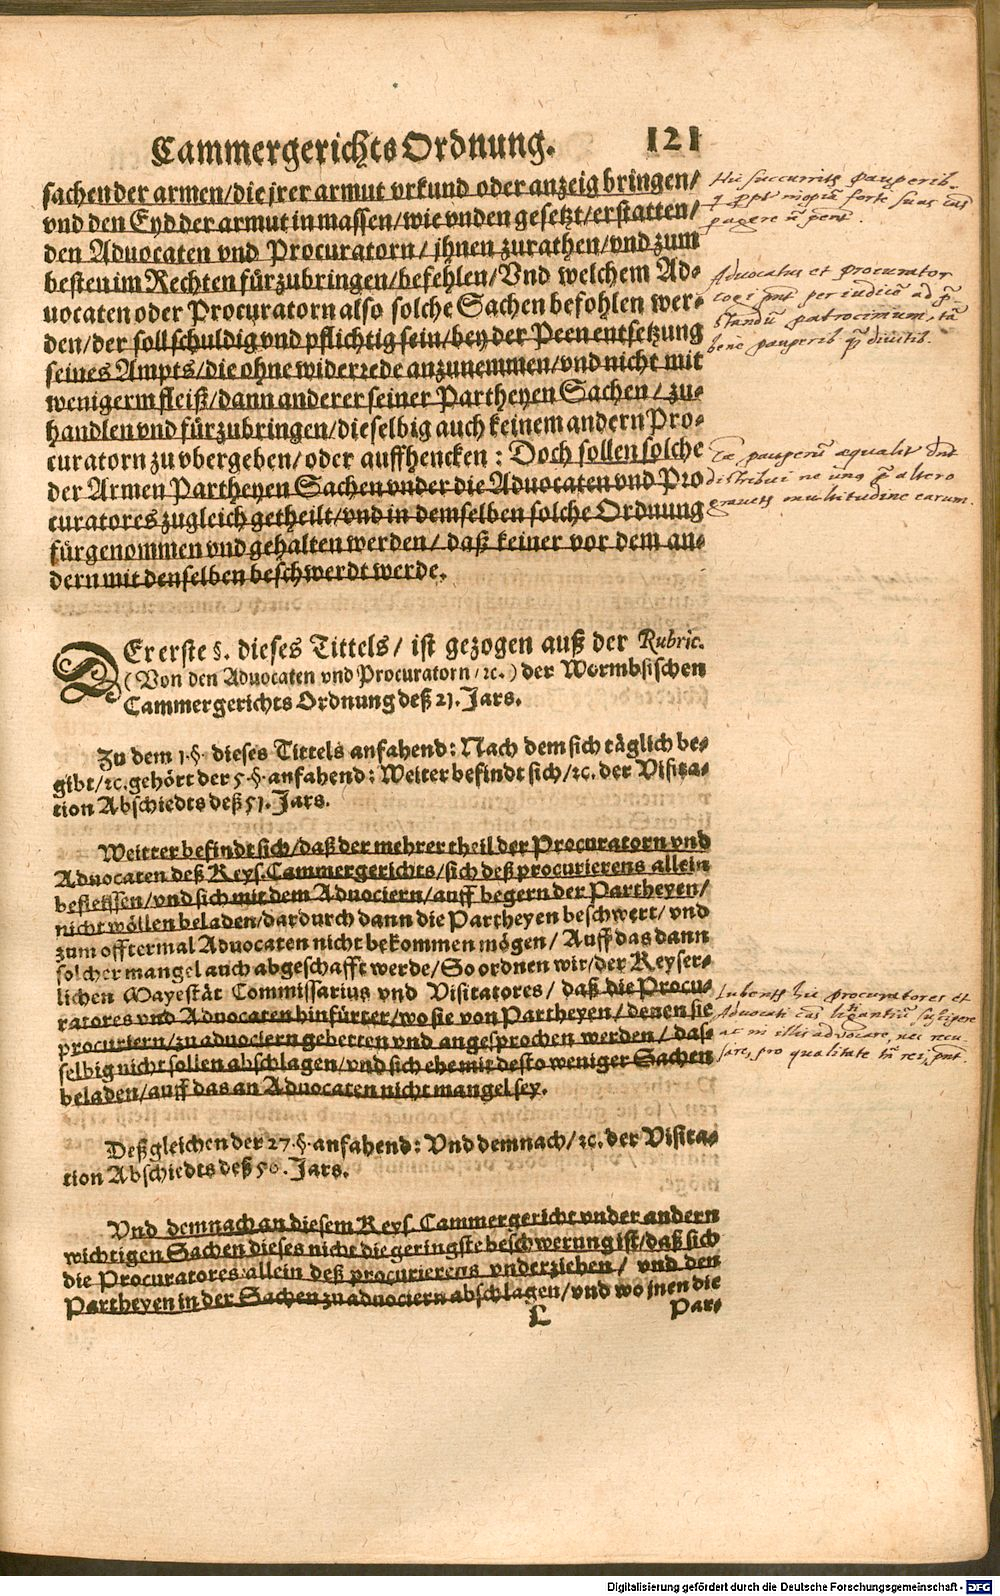 Cammergerichts Ordnung. 121
sachen der armen/die jrer armut vrkund oder anzeig bringen/
vnd den Eyd der armut in massen/wie vnden gesetzt/erstatten/
den Aduocaten vnd Procuratorn/ jhnen zurathen/vnd zum
besten im Rechten fürzubringen/befehlen/Vnd welchem Ad-
uocaten oder Procuratorn also solche Sachen befohlen wer-
den/der soll schuldig vnd pflichtig sein/bey der Peen entsetzung
seines Ampts/die ohne widerrede anzunemmen/vnd nicht mit
wenigerm fleiß/dann anderer seiner Partheyen Sachen/ zu-
handlen vnd fürzubringen/dieselbig auch keinem andern Pro-
curatorn zu vbergeben/oder auffhencken: Doch sollen solche
der Armen Partheyen Sachen vnder die Aduocaten vnd Pro
curatores zugleich getheilt/vnd in demselben solche Ordnung
fürgenommen vnd gehalten werden/ daß keiner vor dem an-
dern mit denselben beschwerdt werde.
Hic succurrit pauperib.
forte suas
Aduocatus et procurator
cogi pnt per iudicē ad p̄-
standū patrocinium, tā
bene pauperib q̄ diuitib.
pauperū aequalit dnt
distribui ne uno p̄ altero
multitudine earum.
DEr erste §. dieses Tittels/ ist gezogen auß der Rubric.
(Von den Aduocaten vnd Procuratorn/ ꝛc.) der Wormbsischen
Cammergerichts Ordnung deß 21. Jars.
Zu dem 1. §. dieses Tittels anfahend: Nach dem sich täglich be-
gibt/ꝛc. gehört der 5. §. anfahend: Weiter befindt sich/ꝛc. der Visita-
tion Abschiedts deß 51. Jars.
Weitter befindt sich/daß der mehrer theil der Procuratorn vnd
Aduocaten deß Keys. Cammergerichts/sich deß procurierens allein
befleissen/vnd sich mit dem Aduociern/auff begern der Partheyen/
nicht wöllen beladen/dardurch dann die Partheyen beschwert/ vnd
zum offtermal Aduocaten nicht bekommen mögen/ Auff das dann
solcher mangel auch abgeschafft werde/So ordnen wir/der Keyser-
lichen Mayestät Commissarius vnd Visitatores/ daß die Procu-
ratores vnd Aduocaten hinfürter/wo sie von Partheyen/ denen sie
procuriern/zu aduociern gebetten vnd angesprochen werden/ das-
selbig nicht sollen abschlagen/vnd sich ehe mit desto weniger Sachen
beladen/auff das an Aduocaten nicht mangel sey.
hic procuratores et
Aduocati
advocare, nec recu-
sare, pro qualitate
Deßgleichen der 27. §. anfahend: Vnd demnach/ꝛc. der Visita-
tion Abschiedts deß 56. Jars.
Vnd demnach an diesem Keys. Cammergericht vnder andern
wichtigen Sachen dieses nicht die geringste beschwerung ist/daß sich
die Procuratores allein deß procurierens vnderziehen/ vnd den
Partheyen in der Sachen zu aduociern abschlagen/vnd wo jnen die
L Par-
Digitalisierung gefördert durch die Deutsche Forschungsgemeinschaft - DFG